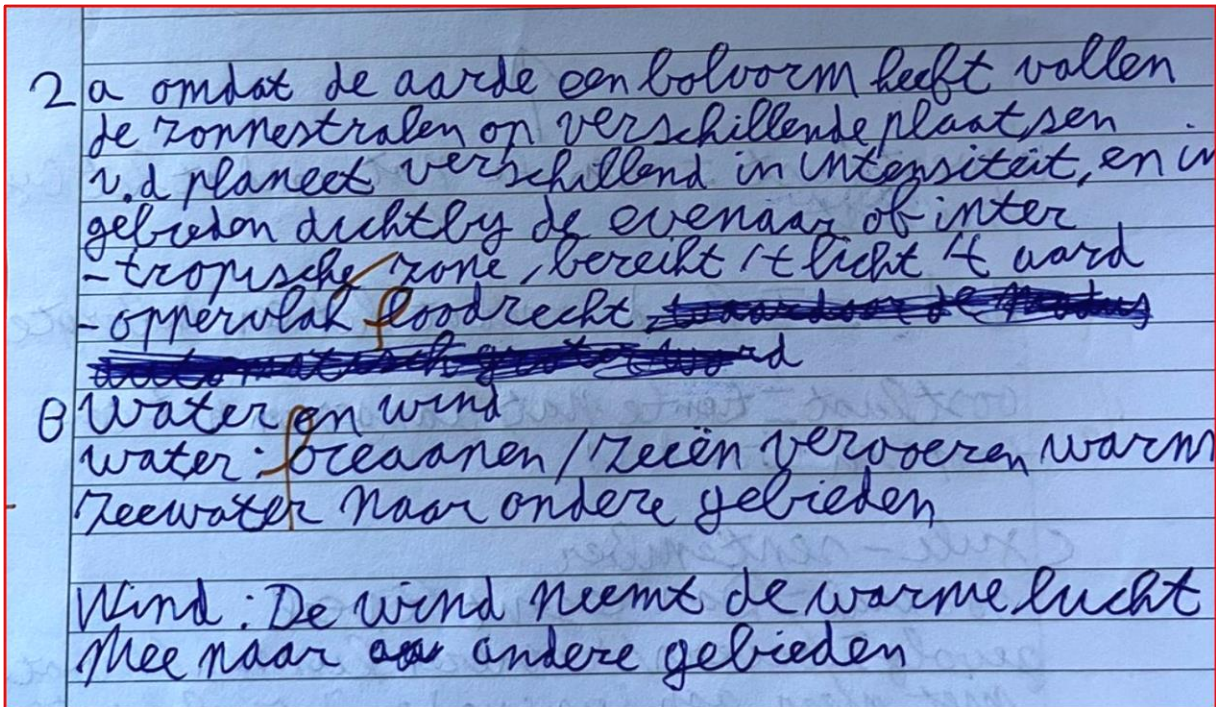 2 a omdat de aarde een bolvorm heeft vallen
de zonnestralen op verschillende plaatsen
v.d planeet verschillend in intensiteit, en in
gebieden dichtby de evenaar of inter
-tropische zone, bereikt 't licht 't aard
-oppervlak loodrecht
B Water en wind
water: oceaanen / zeeën vervoeren warm
zeewater naar andere gebieden
Wind: De wind neemt de warme lucht
Mee naar andere gebieden